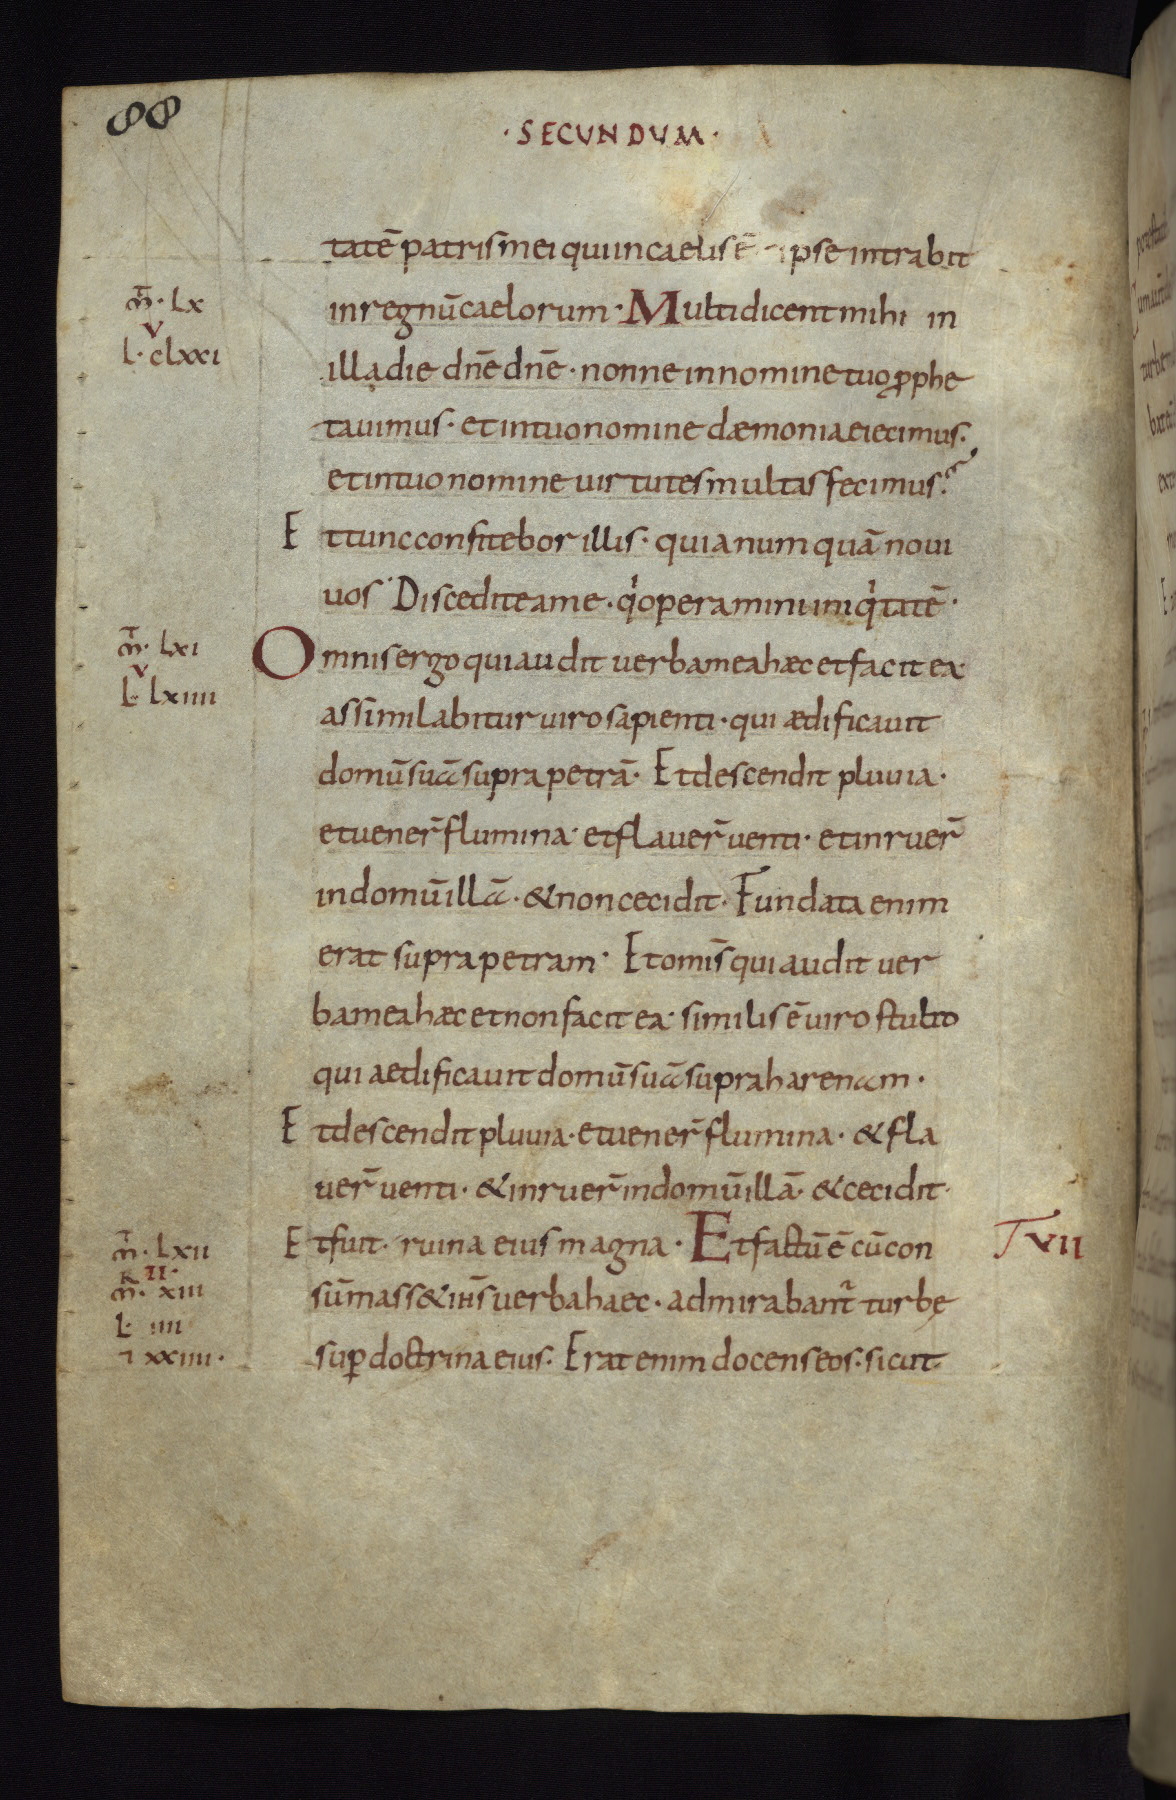 88
· SECUNDUM ·
tatē patris mei qui in caelis ē ipse intrabit
m̄ · lx
in regnū caelorum · Multi dicent mihi in
v
l · clxxi
illa die dn̄e dn̄e · nonne in nomine tuo ꝓphe
tauimus · et in tuo nomine dæmonia eiecimus ·
et in tuo nomine uirtutes multas fecimus ·
Et tunc confitebor illis · quia numquā noui
uos · Discedite a me · qͥ operamini iniqͥtatē ·
m̄ · lxi
Omnis ergo qui audit uerba mea hæc et facit ea
v
l · lxiiii
assimilabitur uiro sapienti · qui ædificauit
domū suā supra petrā · Et descendit pluuia ·
et uener̄ flumina · et flauer̄ uenti · et inruer̄
in domū illā · & non cecidit · Fundata enim
erat supra petram · Et omīs qui audit uer
ba mea hæc et non facit ea · similis ē uiro stulto
qui aedificauit domū suā supra harenam ·
Et descendit pluuia · et uener̄ flumina · & fla
uer̄ uenti · & inruer̄ in domū illā · & cecidit ·
m̄ · lxii
Et fuit · ruina eius magna · Et factū ē cū con
T vii
R II ·
m̄ · xiii
sūmass& ih̄s uerba haec · admirabant᷑ turbę
l · iiii
⁊ xxiiii ·
suꝑ doctrina eius · Erat enim docens eos · sicut